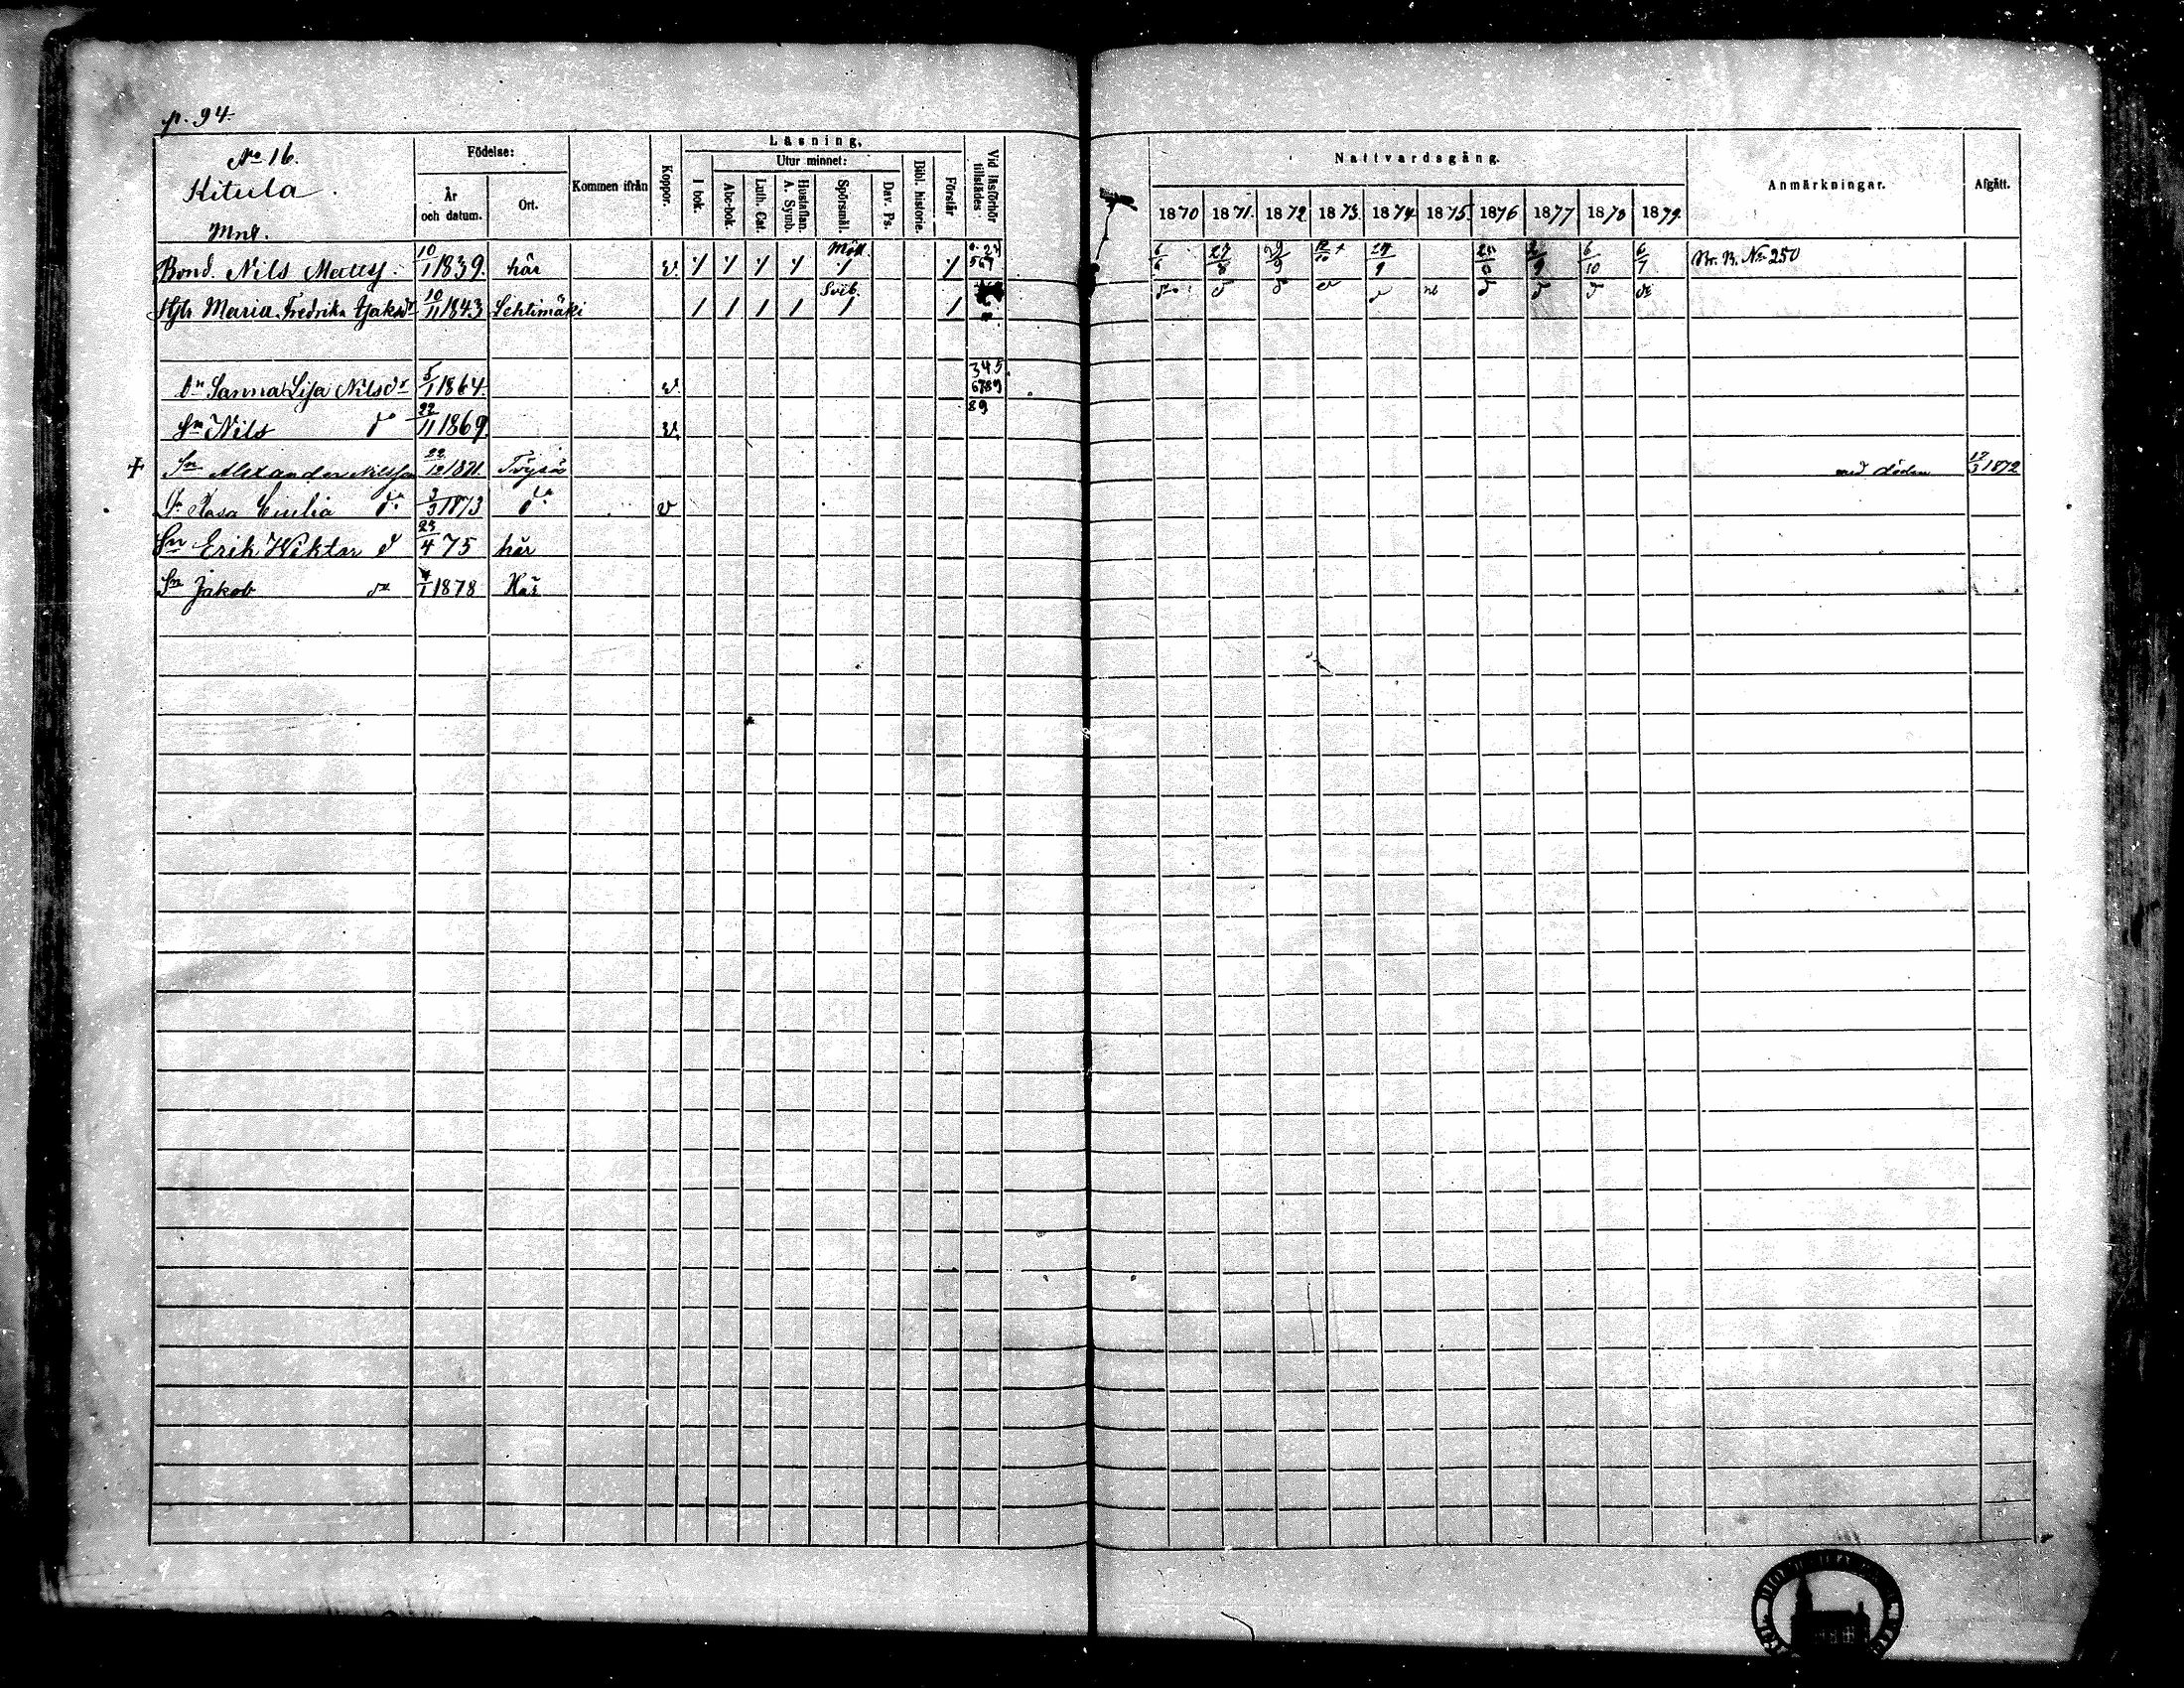 p. 94.
No 16.
Kitula
Mn4.
Födelse:
År och datum.
Ort.
Kommen ifrån
Koppor.
Läsning.
I bok.
Utur minnet:
Abc-bok.
Luth. Cat.
Hustaflan. A. Symb.
Spörsmål.
Dav. Ps.
Bibl. historie.
Förstår
Vid läsförhör tillstädes
Nattvardsgång.
1870 1871. 1872 1873. 1874 1875 1876 1877 1878 1879
Anmärkningar.
Afgått.
Bond. Nils Mattss. 10/1 1839. här v. Mött. 6/6 27/8 9/9 12/10 27/9 9/9 6/10 6/7 Nr. B. No 250
Hstr Maria Fredrika Jaksdr 10/11 1843 Lehtimäki / / / / Svib. / /
dr Sanna Lisa Nilsdr 5/1 1864. v. 345. 6789
Sn Nils do 22/11 1869 v. 89
+ Sn Alexander Nilsson 22/12 1871. Töysä med döden 17/3 1872
Dr Rosa Emilia do 3/3 1873 do v
Sn Erik Wiktor d 23/4 75 här
Sn Jakob do 4/1 1878 Här